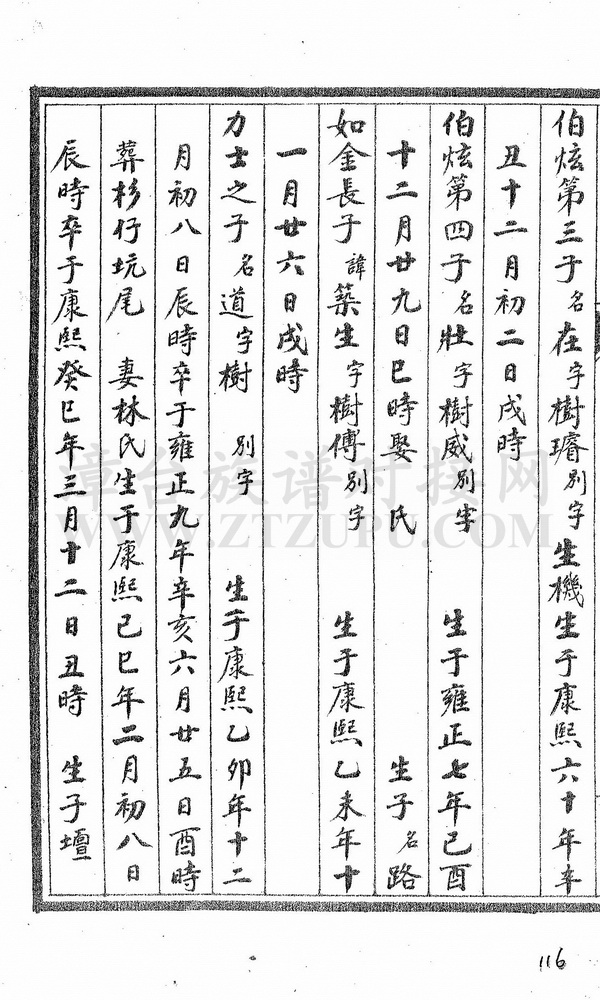 伯炫第三子名在字樹璿別字生機生于康熙六十年辛
丑十二月初二日戌時
伯炫第四子名壯字樹威別字 生于雍正七年己酉
十二月廿九日巳時娶 氏 生子名路
如金長子諱築生字樹傅別字 生于康熙乙未年十
一月廿六日戌時
力士之子名道字樹 別字 生于康熙乙卯年十二
月初八日辰時卒于雍正九年辛亥六月廿五日酉時
葬杉仔坑尾 妻林氏生于康熙己巳年二月初八日
辰時卒于康熙癸巳年三月十二日丑時 生子壇
漳台族谱对接网
WWW.ZTZUPU.COM
116